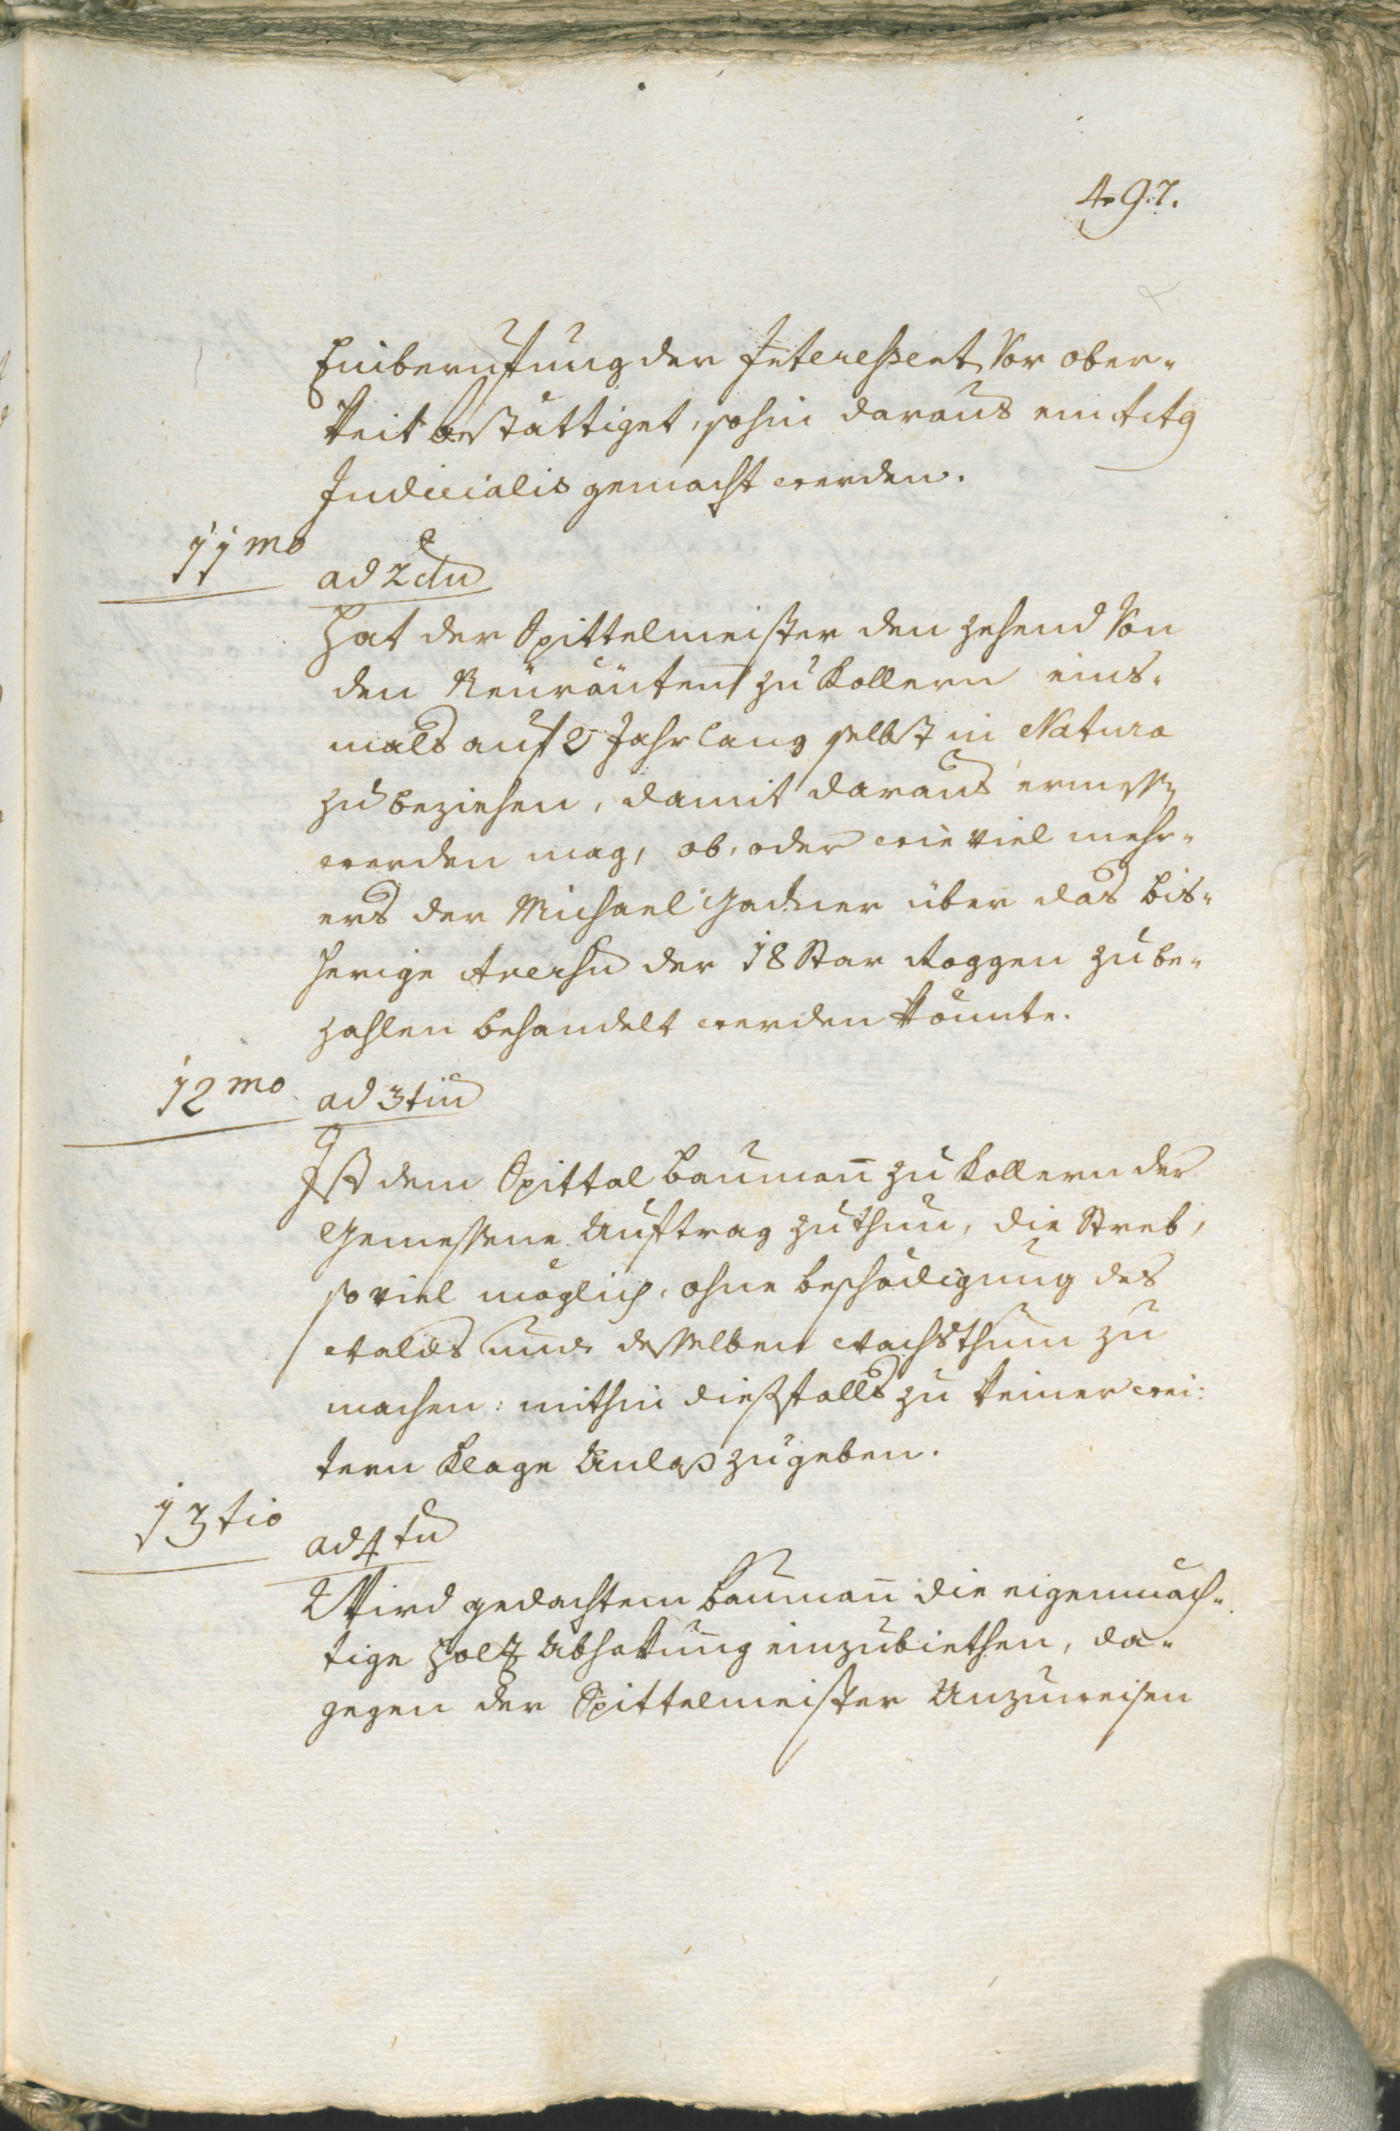 497.
Einberuffung der Interessent, Vor ober-
keit bestättiget, sohin daraus ein Actq
Judicialis gemacht werden.
11mo
ad 2dū
Hat der Spittelmeister den zehend Von
den Neüraüten zu Kollern eins-
mals auf 2 Jahr lang selbst in Natura
zu beziehen, damit daraus ermess
werden mag, ob, oder wie viel mehr-
ers der Michael Gadner über das bis-
herige Aversū der 18 Star Roggen zu be-
zahlen behandelt werden könnte.
12mo
ad 3tiū
Ist dem Spittal Baumañ zu Kollern der
Gemessene Auftrag zu thun, die Streb,
so viel möglich, ohne beschädigung des
Walds und desselben Wachsthum zu
machen: mithin diessfalls zu keiner wei:
tern Klage Anlaß zu geben.
13tio
ad 4tū
Wird gedachtem Baumañ die eigenmäch-
tige Holtz Abhakung einzubiethen, da-
gegen der Spittelmeister Anzuweisen